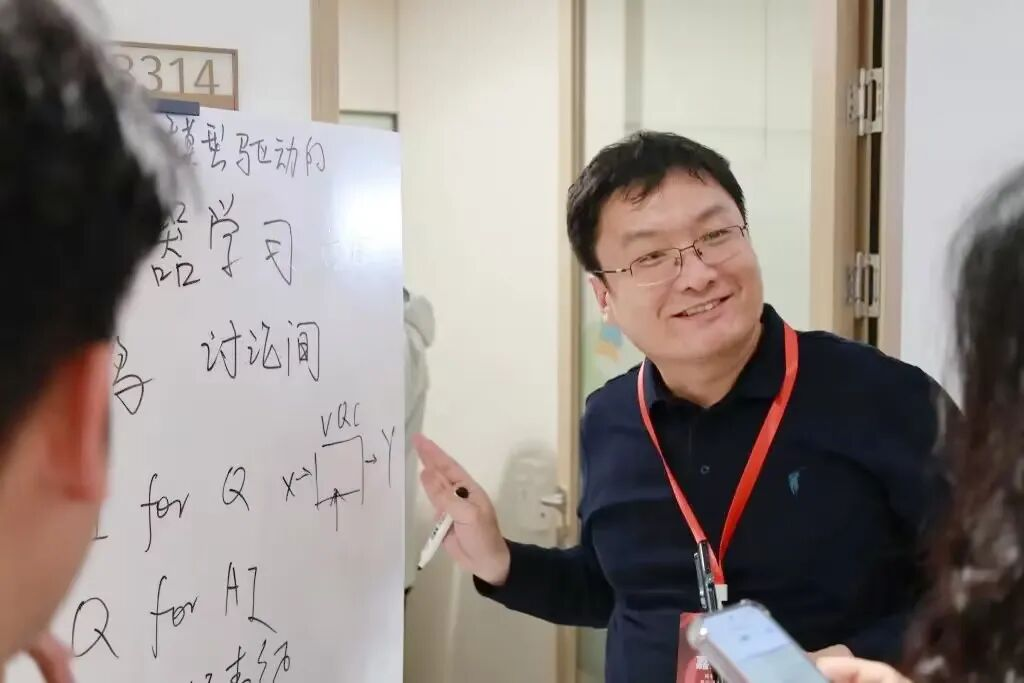 3314
模型驱动的
器学习
讨论间
VQC
X → → Y
for Q
Q for AI